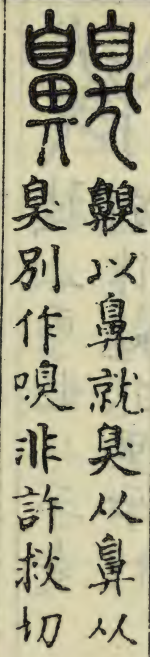 齅
齅以鼻就臭从鼻从
臭別作嗅非許救切